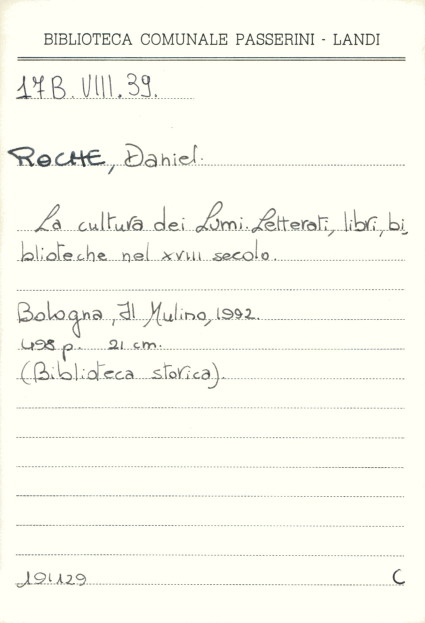 BIBLIOTECA COMUNALE PASSERINI - LANDI
17B.VIII.39.
ROCHE, Daniel.
La cultura dei Lumi. Letterati, libri, bi
blioteche nel XVIII secolo.
Bologna, Il Mulino, 1992.
498 p. 21 cm.
(Biblioteca storica).
191129
C